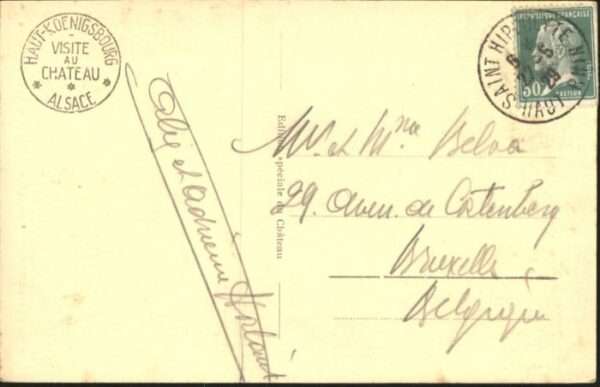 HAUT-KOENIGSBOURG
VISITE
AU
CHATEAU
ALSACE
et Adrienne
Edition spéciale du Château
REPUBLIQUE FRANÇAISE
50
SAINT HIPPOLYTE
HAUT RHIN
Mr et Mme Belva
29. Aven. de Cortenberg
Bruxelles
Belgique